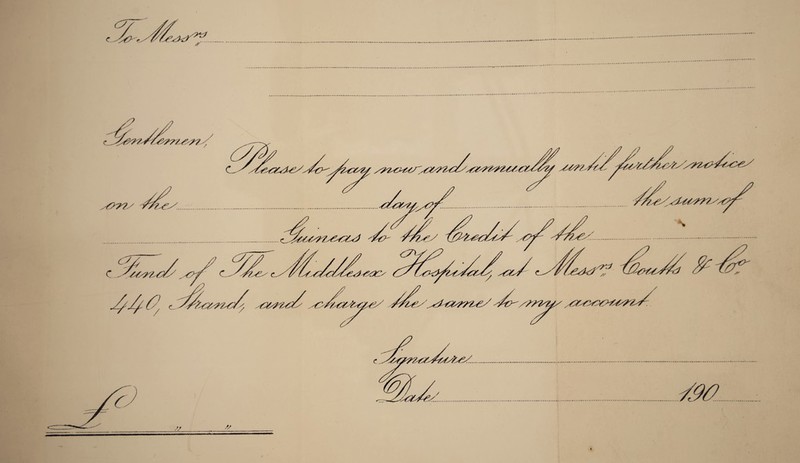 To Messrs
Gentlemen,
Please to pay now and annually until further notice
on the day of the sum of
Guineas to the Credit of the
Fund of The Middlesex Hospital, at Messrs Coutts & Co
440, Strand, and charge the same to my account.
Signature
Date 190
£ " "